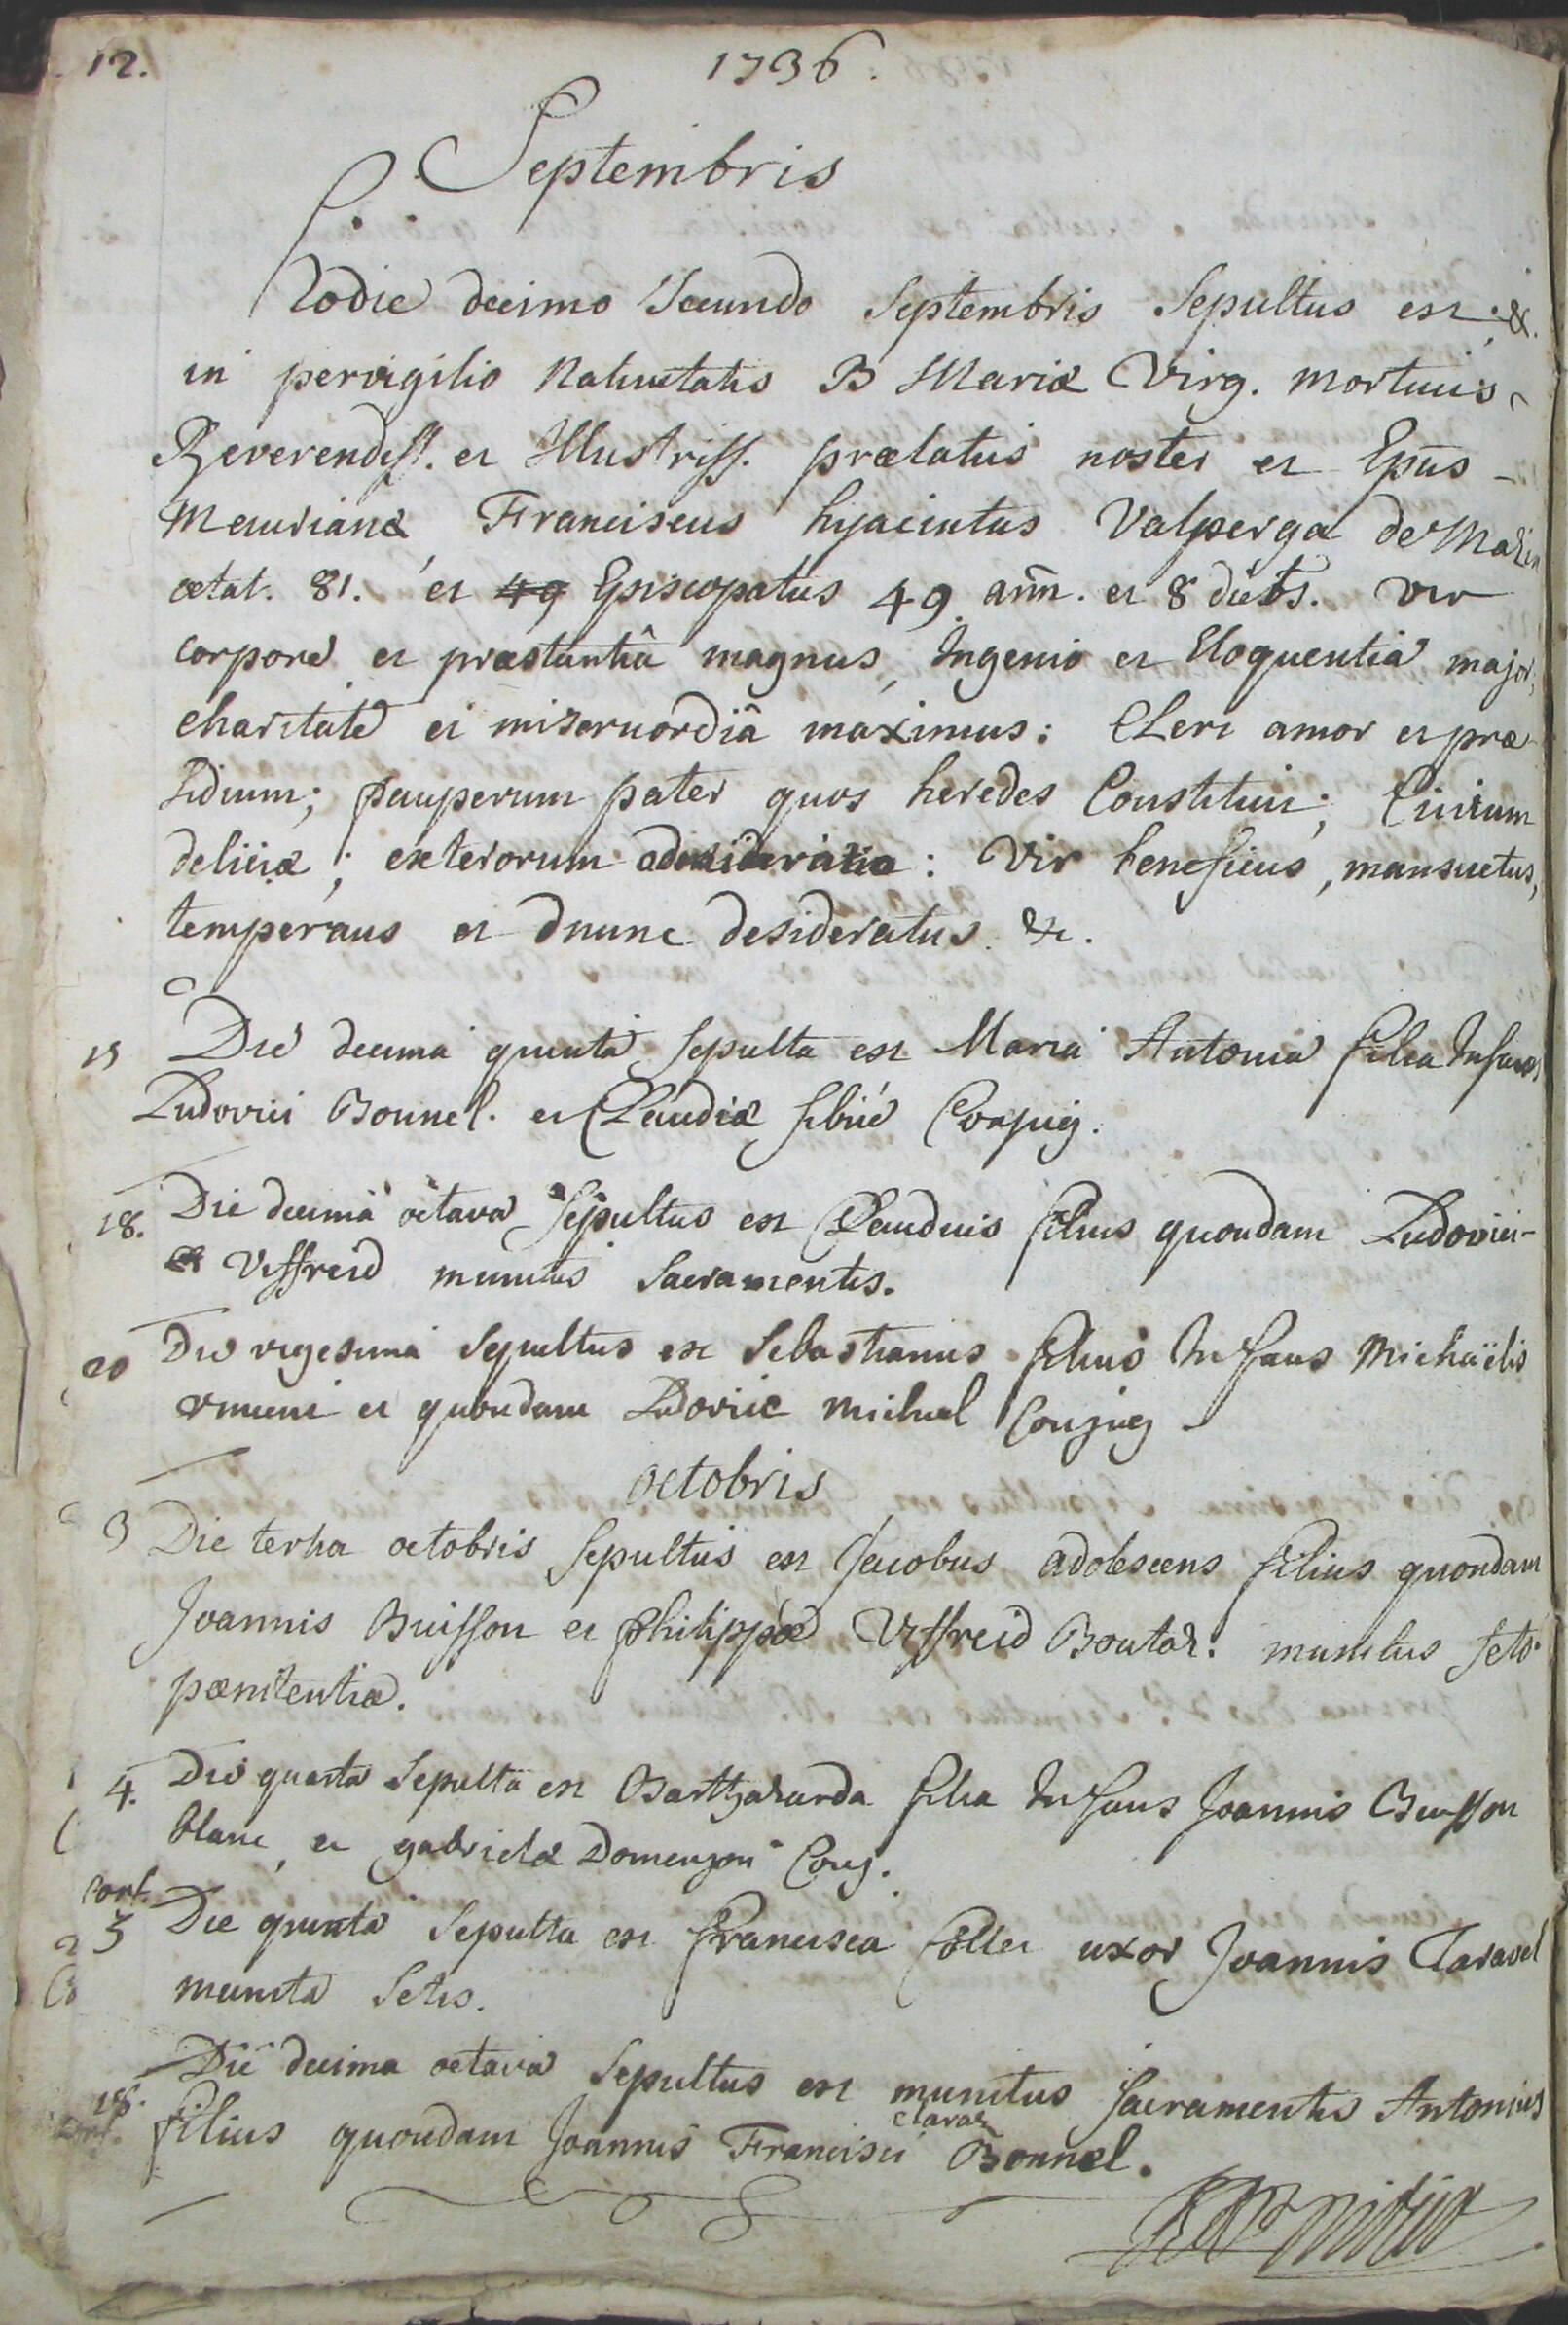 12.
1736.
Septembris
Hodie decimo secundo Septembris Sepultus est, &.
in pervigilio Nativitatis B Mariæ Virg. mortuus
Reverendiss. et Illustriss. prælatus noster et Epūs
Maurianæ Franciscus hyacintus Valperga de Mazin
ætat. 81. et 49 Episcopatus 49 ann. et 8 dieb's. Vir
corpore et præstantiâ magnus, Ingenio et Eloquentia major,
charitate et misericordiâ maximus: Cleri amor et præ
sidium; pauperum pater quos heredes Constituit; Civium
deliciæ; exterorum : Vir beneficus, mansuetus,
temperans et nunc desideratus. &c.
15 Die decima quinta sepulta est Maria Antonia filia Infans
Ludovici Bonnel. et Claudiæ Conjug.
18. Die decima octava Sepultus est Claudius filius quondam Ludovici
Viffreid munitus Sacramentis.
20 Die vigesima Sepultus est Sebastianus filius Infans Michaëlis
et quondam Ludovicæ Michael Conjug
octobris
3 Die tertia octobris Sepultus est Jacobus adolescens filius quondam
Joannis Buisson et philippæ Viffreid Boutaz. munitus scto
pænitentiæ.
4. Die quarta Sepulta est filia Infans Joannis Buisson
blanc, et gabrielæ Domenjon Conj.
corp.
5 Die quinta Sepulta est francisca Collet uxor Joannis Taravel
munita Sctis.
18. Die decima octava Sepultus est munitus Sacramentis Antonius
filius quondam Joannis Francisci claraz Bonnel.